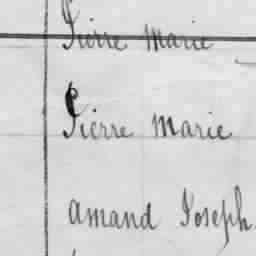 Pierre Marie
Pierre Marie
Amand Joseph